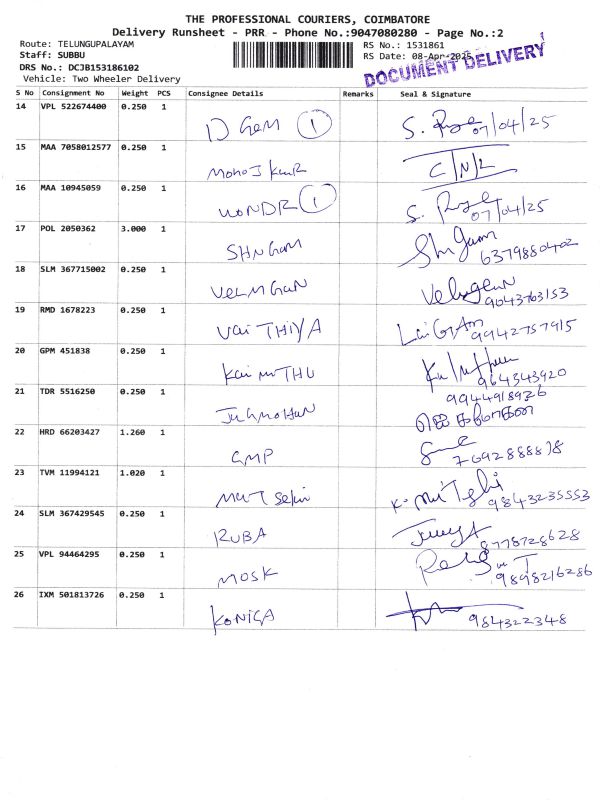 THE PROFESSIONAL COURIERS, COIMBATORE
Delivery Runsheet - PRR - Phone No.:9047080280 - Page No.:2
Route: TELUNGUPALAYAM
Staff: SUBBU
DRS No.: DCJB153186102
Vehicle: Two Wheeler Delivery
RS No.: 1531861
RS Date: 08-Apr-2025
DOCUMENT DELIVERY
S No Consignment No Weight PCS Consignee Details Remarks Seal & Signature
14 VPL 522674400 0.250 1 D Gem 1 07/04/25
15 MAA 7058012577 0.250 1 C/N/L
16 MAA 10945059 0.250 1 WONDR 1 07/04/25
17 POL 2050362 3.000 1 6379880402
18 SLM 367715002 0.250 1 9043763153
19 RMD 1678223 0.250 1 VaiTHiYA 9942757915
20 GPM 451838 0.250 1 964343920
21 TDR 5516250 0.250 1 9944918926
22 HRD 66203427 1.260 1 GMP
23 TVM 11994121 1.020 1 9843235553
24 SLM 367429545 0.250 1 RUBA 8778728628
25 VPL 94464295 0.250 1 MOSK 9898216286
26 IXM 501813726 0.250 1 KONiCA 984322348